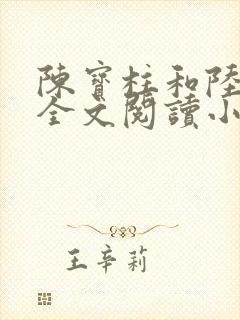 陳寶柱和陸
全文閱讀小
王辛莉